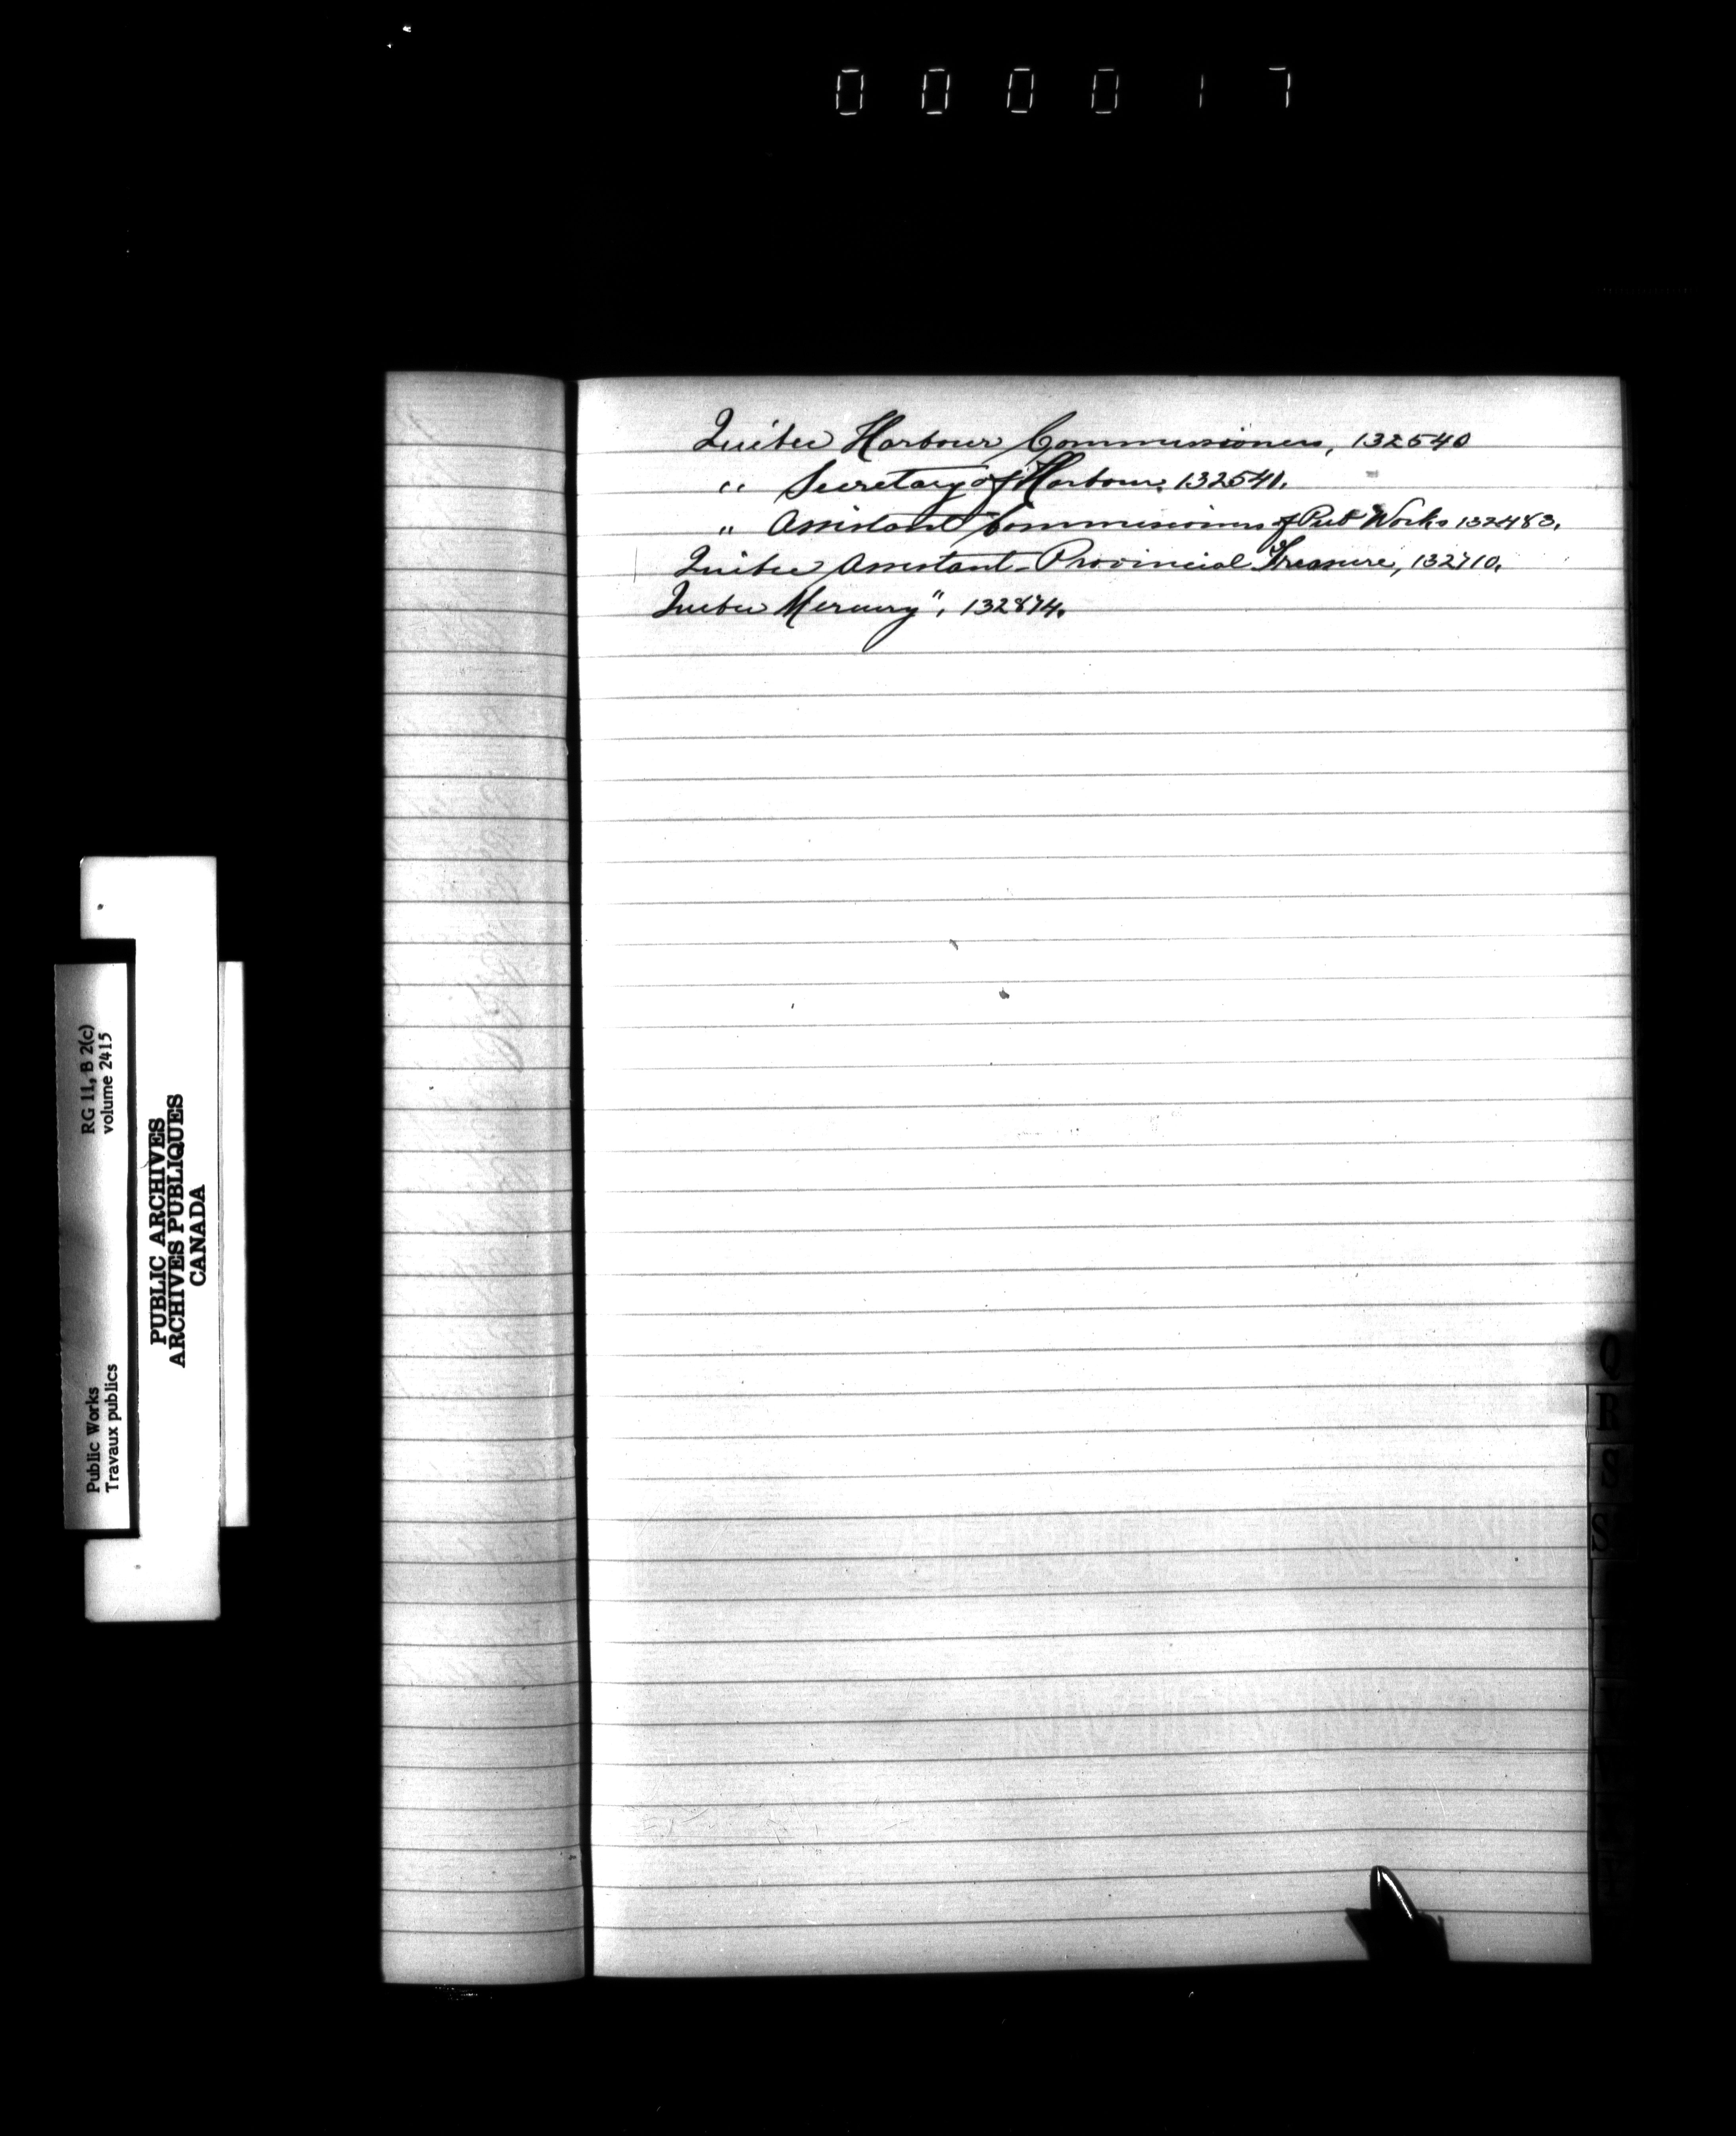 000017
Quebec Harbour Commissioners, 132540
" Secretary of Harbour, 132541.
" Assistant Commissioners of Pub Works 132483.
Quebec Assistant Provincial Treasure, 132710.
Quebec Mercury", 132874.
Public Works RG 11, B 2(c)
Travaux publics volume 2415
PUBLIC ARCHIVES
ARCHIVES PUBLIQUES
CANADA
Q
R
S